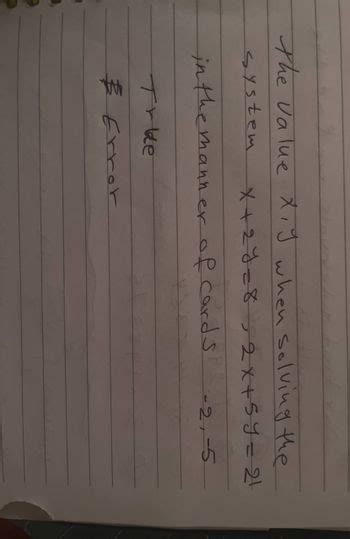 the value x,y when solving the
system x+2y=8 , 2x+5y=21
in the manner of cards -2,-5
True
Error